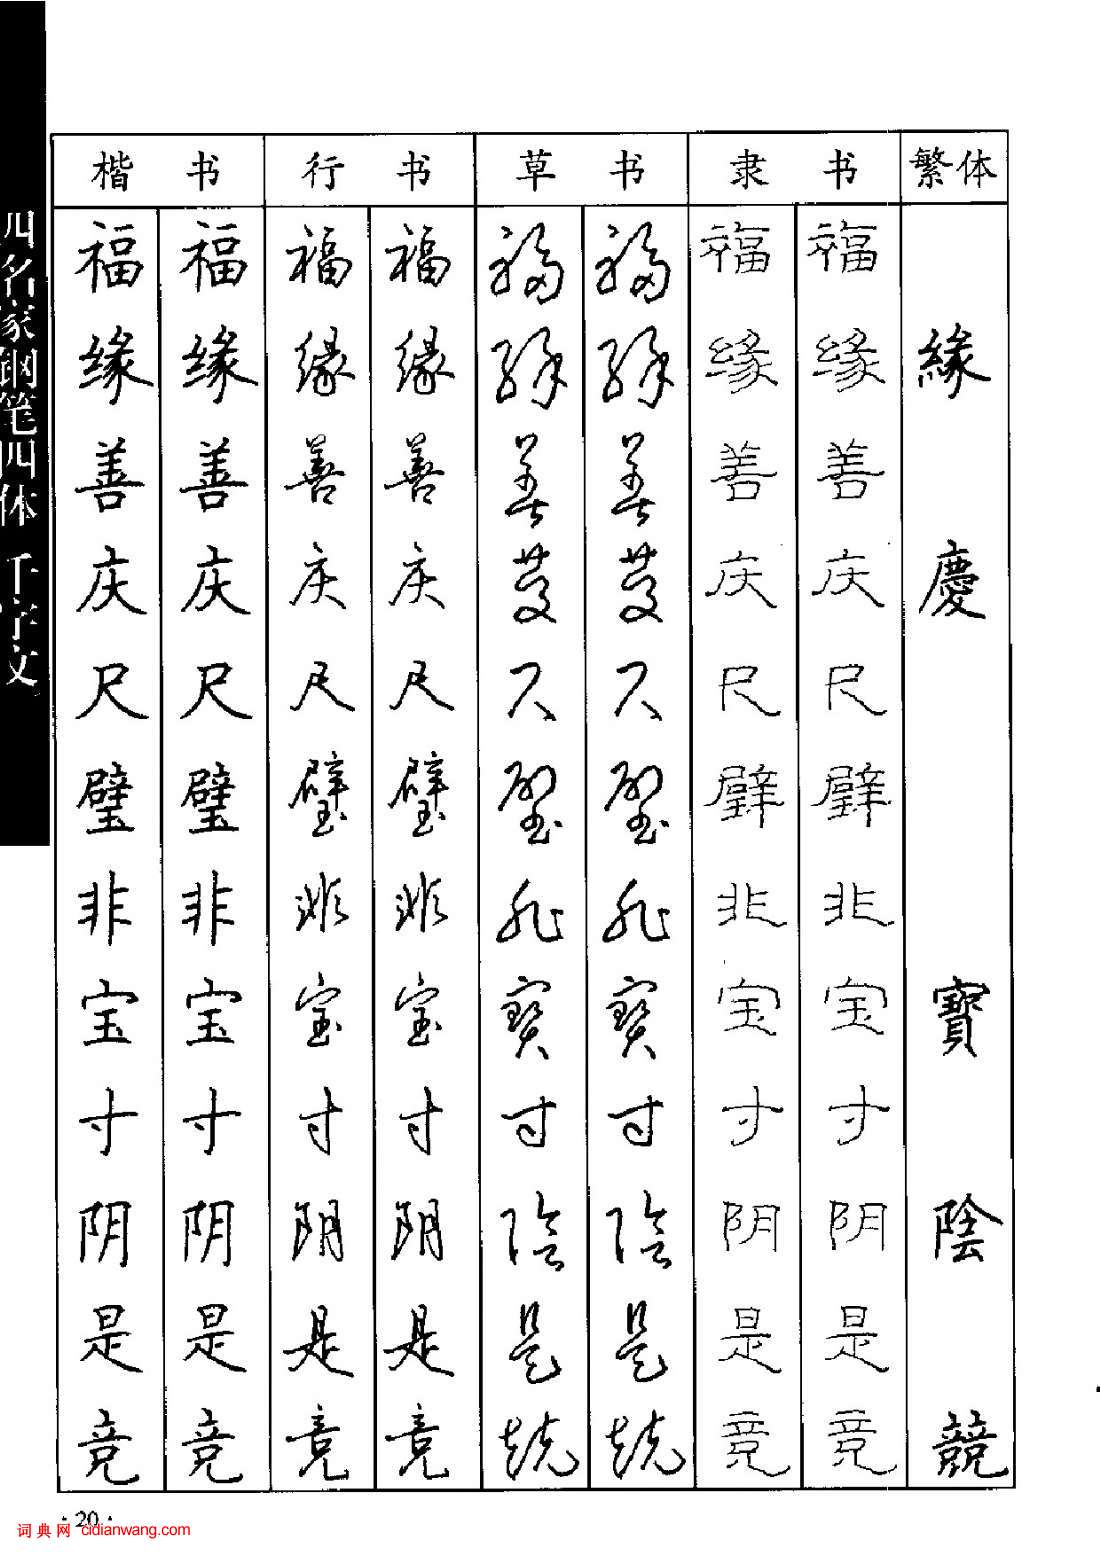 四名家钢笔四体 千字文
楷书 行书 草书 隶书 繁体
福 福 福 福 福 福 福 福
缘 缘 缘 缘 缘 缘 缘 缘 緣
善 善 善 善 善 善 善 善
庆 庆 庆 庆 慶 慶 庆 庆 慶
尺 尺 尺 尺 尺 尺 尺 尺
璧 璧 璧 璧 璧 璧 璧 璧
非 非 非 非 非 非 非 非
宝 宝 宝 宝 寶 寶 宝 宝 寶
寸 寸 寸 寸 寸 寸 寸 寸
阴 阴 阴 阴 陰 陰 阴 阴 陰
是 是 是 是 是 是 是 是
竞 竞 竞 竞 竞 竞 竞 竞 競
·20·
词典网 cidianwang.com